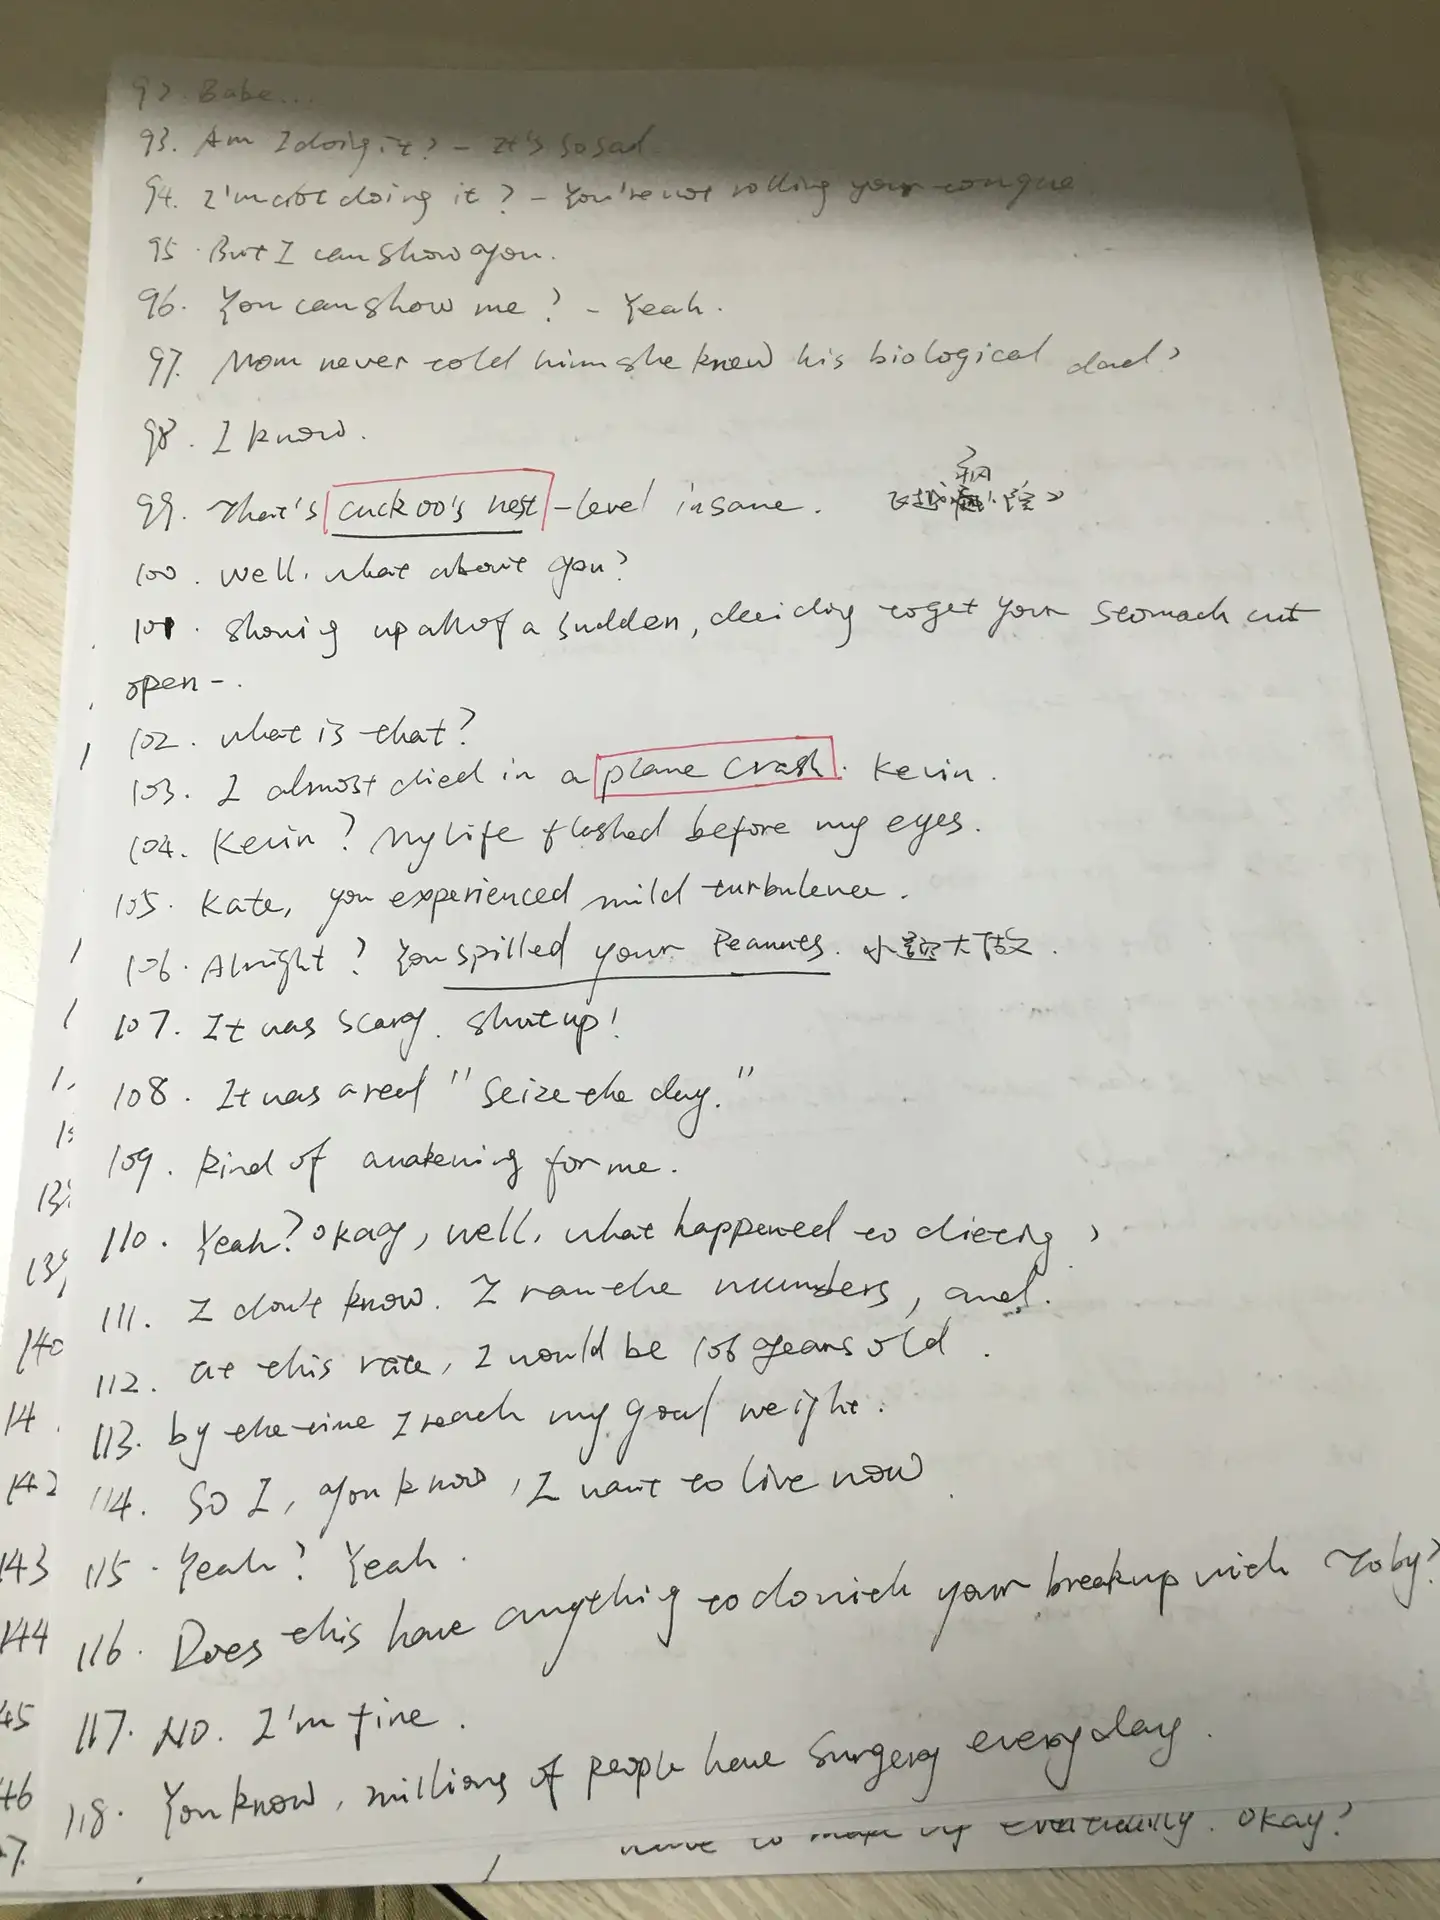 92. Babe...
93. Am I doing it? - It's so sad
94. I'm not doing it? - You're not rolling your tongue
95. But I can show you.
96. You can show me? - Yeah.
97. Mom never told him she knew his biological dad?
98. I know.
99. That's cuckoo's nest-level insane. 《飞越疯人院》
100. Well, what about you?
101. Showing up all of a sudden, deciding to get your stomach cut
open-.
102. What is that?
103. I almost died in a plane crash. Kevin.
104. Kevin? My life flashed before my eyes.
105. Kate, you experienced mild turbulence.
106. Alright? You spilled your Peanuts. 小题大做.
107. It was scary. Shut up!
108. It was a real "Seize the day."
109. Kind of awakening for me.
110. Yeah? Okay, well, what happened to dieting?
111. I don't know. I ran the numbers, and.
112. at this rate, I would be 106 years old.
113. by the time I reach my goal weight.
114. SO I, you know, I want to live now.
115. Yeah? Yeah.
116. Does this have anything to do with your breakup with Toby?
117. NO. I'm fine.
118. You know, millions of people have surgery every day.
eventually. Okay?
140
14
142
143
144
45
46
7